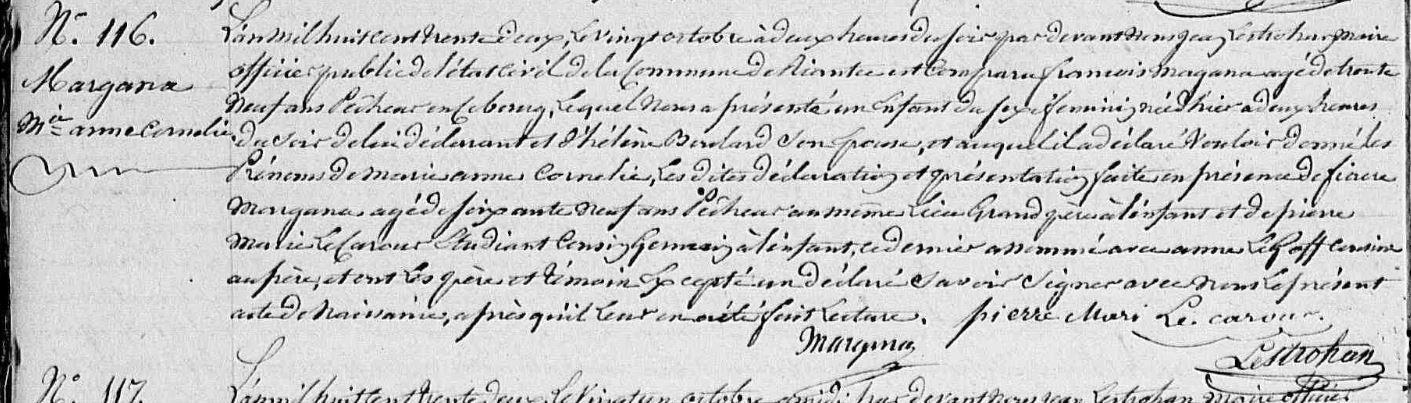 N.º 116.
Margana
M.ie anne Cornelie
L'an mil huit cent trente deux, le vingt octobre à deux heures du soir par devant nous jean Lestrohan, maire
officier public de l'état civil de la Commune de Riantec est comparu françois Magana agé de trente
neuf ans Pêcheur en ce bourg, lequel nous a présenté un Enfant du sexe féminin, née d'hier à deux heures
du soir de lui déclarant et d'hélène son épouse, et auquel il a déclaré vouloir donné les
Prénoms de marie anne Cornelie, les dites déclaration et présentation faite en présence de fiacre
Margana agé de soixante neuf ans Pêcheur au même lieu Grand père à l'enfant et de pierre
Marie Le Carour Etudiant Cousin Germain à l'enfant, ce dernier a nommé avec anne Le Goff cousine
au père, et ont les père et témoin Excepté un déclaré savoir signer avec nous le présent
acte de Naissance, après qu'il leur en a été fait lecture. pierre Mari Le Carour.
Margana
Lestrohan
N.º 117.
L'an mil huit cent trente deux Le vingt un octobre à midi, par devant nous jean Lestrohan Maire officier